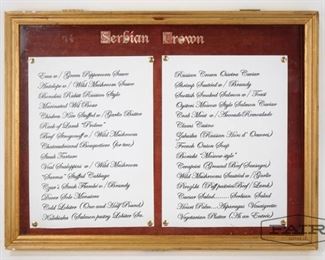 Serbian Crown
Emu w/ Green Peppercorn Sauce
Antelope w/ Wild Mushroom Sauce
Boneless Rabbit Russian Style
Marinated Wild Boar
Chicken Kiev Stuffed w/ Garlic Butter
Rack of Lamb "Proline"
Beef Stroganoff w/ Wild Mushroom
Chateaubriand Bouquetiere (for two)
Steak Tartare
Veal Scaloppini w/ Wild Mushroom
"Sarma" Stuffed Cabbage
Czar's Steak Flambé w/ Brandy
Dover Sole Meuniere
Cold Lobster (One and Half Pound)
Kulebiaka (Salmon pastry Lobster Sa.
Russian Crown Osietra Caviar
Shrimp Sauteed w/ Brandy
Scottish Smoked Salmon w/ Toast
Oysters Moscow Style Salmon Caviar
Crab Meat w/ Avocado Remoulade
Clams Casino
Zakuska (Russian Hors d' Oeuvres)
French Onion Soup
Borscht "Moscow style"
Cevapcici (Ground Beef Sausages)
Wild Mushrooms Sauteed w/ Garlic
Piroshki (Puff pastries/Beef / Lamb)
Caesar Salad........ Serbian Salad
Heart Palm....Asparagus Vinaigrette
Vegetarian Platter (As an Entree)
FAIR